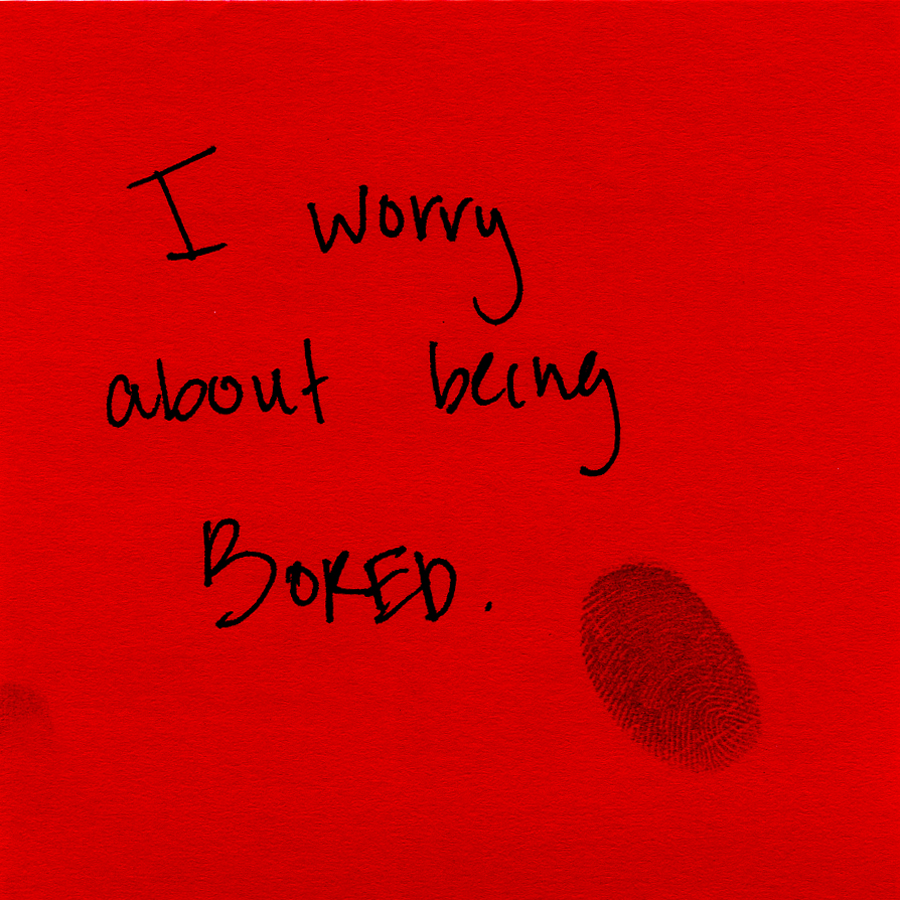 I worry
about being
BORED.